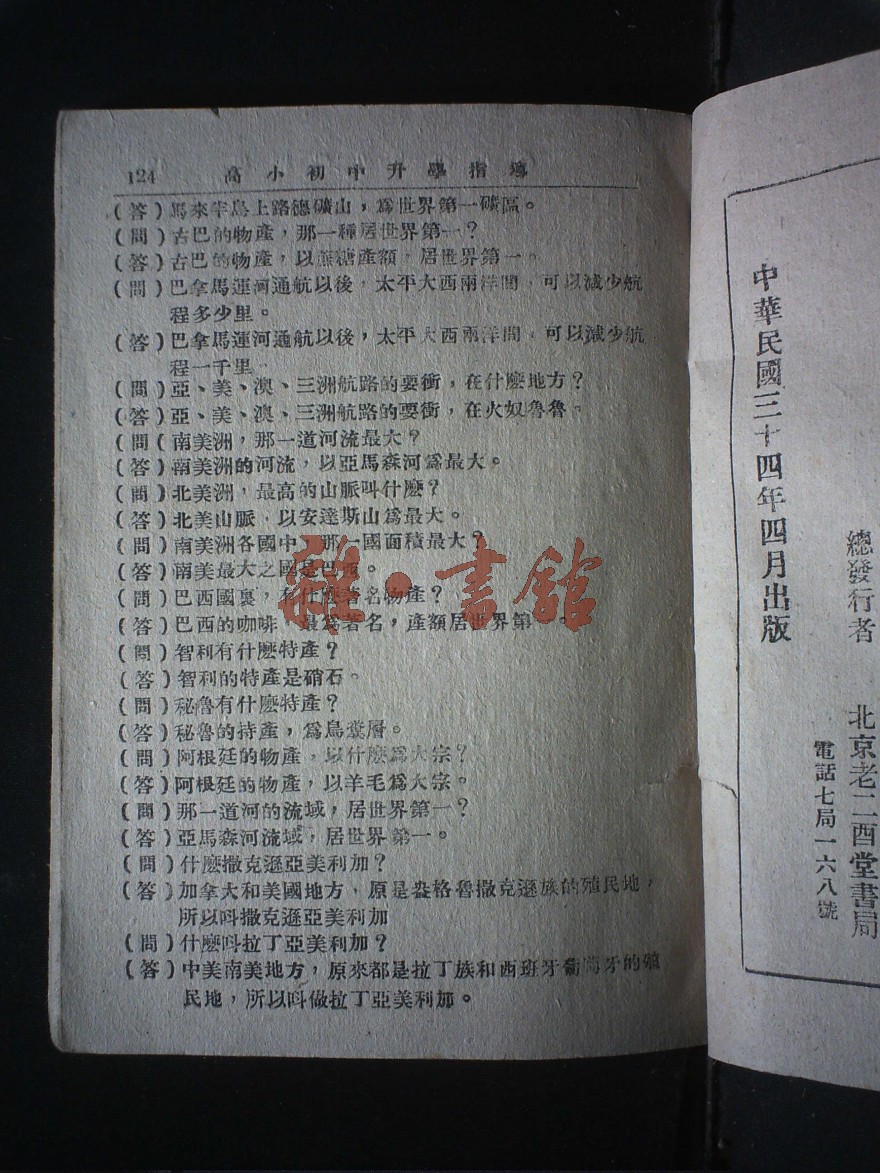 124 高小初中升學指導
(答)馬來半島上路德礦山，爲世界第一礦區。
(問)古巴的物產，那一種居世界第一？
(答)古巴的物產，以蔗糖產額，居世界第一。
(問)巴拿馬運河通航以後，太平大西兩洋間，可以減少航
程多少里。
(答)巴拿馬運河通航以後，太平大西兩洋間，可以減少航
程一千里。
(問)亞、美、澳、三洲航路的要衝，在什麽地方？
(答)亞、美、澳、三洲航路的要衝，在火奴魯魯。
(問(南美洲，那一道河流最大？
(答)南美洲的河流，以亞馬森河爲最大。
(問)北美洲，最高的山脈叫什麽？
(答)北美山脈，以安達斯山爲最大。
(問)南美洲各國中，那一國面積最大？
(答)南美最大之國是巴西。
(問)巴西國裏，有什麽著名物產？
(答)巴西的咖啡，最爲著名，產額居世界第一。
(問)智利有什麽特產？
(答)智利的特產是硝石。
(問)秘魯有什麽特產？
(答)秘魯的持產，爲鳥糞層。
(問)阿根廷的物產，以什麽爲大宗？
(答)阿根廷的物產，以羊毛爲大宗。
(問)那一道河的流域，居世界第一？
(答)亞馬森河流域，居世界第一。
(問)什麽撒克遜亞美利加？
(答)加拿大和美國地方，原是盎格魯撒克遜族的殖民地，
所以叫撒克遜亞美利加
(問)什麽叫拉丁亞美利加？
(答)中美南美地方，原來都是拉丁族和西班牙葡萄牙的殖
民地，所以叫做拉丁亞美利加。
雜·書館
中華民國三十四年四月出版
總發行者 北京老二酉堂書局
電話七局一六八號